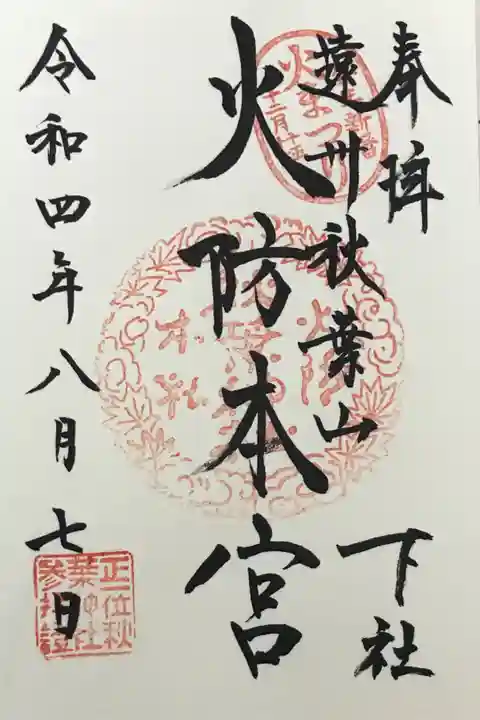 奉拝
遠州秋葉山
下社
火防本宮
令和四年八月七日
火まつり
正一位秋
葉神社
参拝証